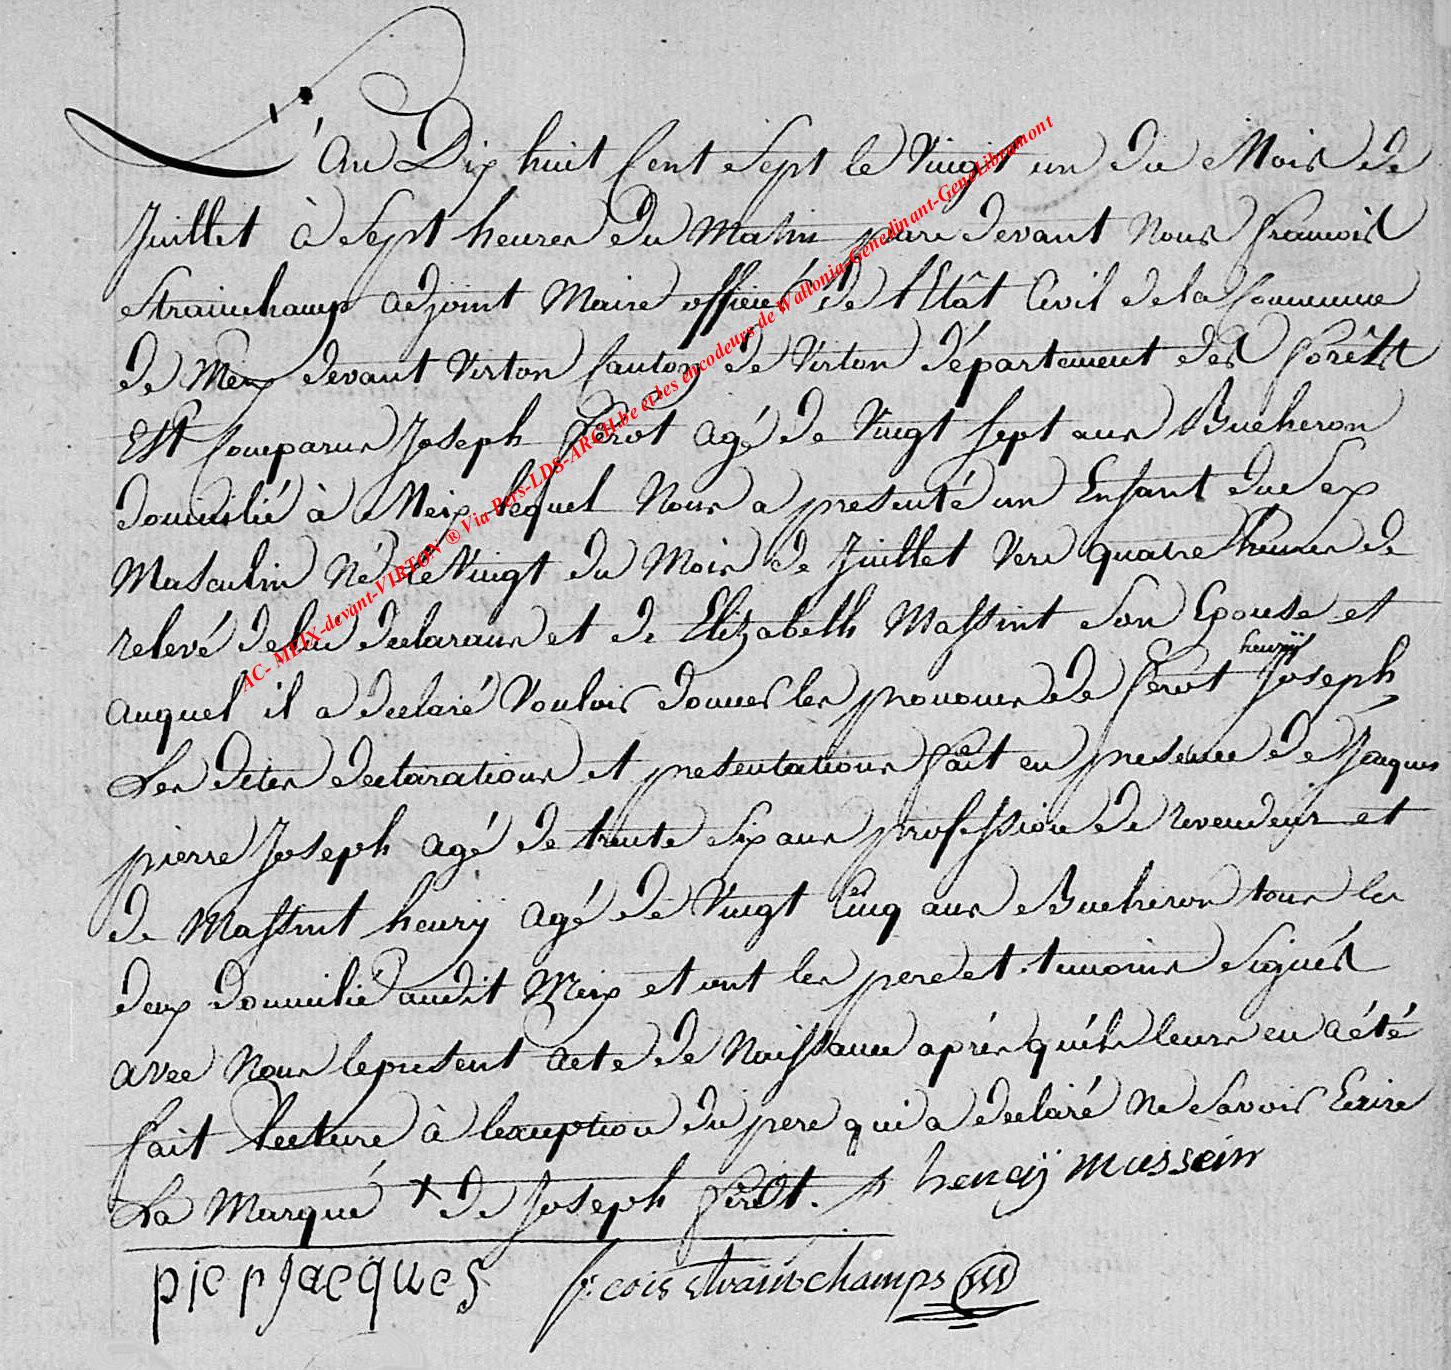 L'An Dix huit Cent Sept le Vingt un du Mois de
Juillet à Sept heures du Matin par devant Nous francois
Strainchamp adjoint Maire officier de l'Etât Civil de la Commune
de Meix devant Virton Canton de Virton département des Forêts
Est Comparus Joseph ferot agé de Vingt Sept ans Bucheron
domicilié à Meix lequel Nous a presenté un Enfant du Sex
Masculin Né le Vingt du Mois de Juillet Vers quatre heures de
relevé de lui declarans et de Elizabeth Massint Son Epouse et
henrÿ
auquel il a declaré Vouloir donner les prenoms de ferot Joseph
Les dites declarations et presentations fait en presence de Jaques
pierre Joseph agé de trente Six ans profession de revendeur et
de Massint henrÿ agé de Vingt Cinq ans Bucheron tous les
deux domicilié audit Meix et ont les pere et temoins Signés
avec Nous le present acte de Naissance aprés qu'ils leurs en a été
fait lecture à lexception du pere qui a declaré Ne Savoir Ecrire
La Marqué + de Joseph ferot. henrÿ massein
pierJacques fcois Strainchamps
AC- MEIX-devant-VIRTON ® Via Pers-LDS-ARCH.be et les encodeurs de Wallonia-Genedinant-GeneLibramont